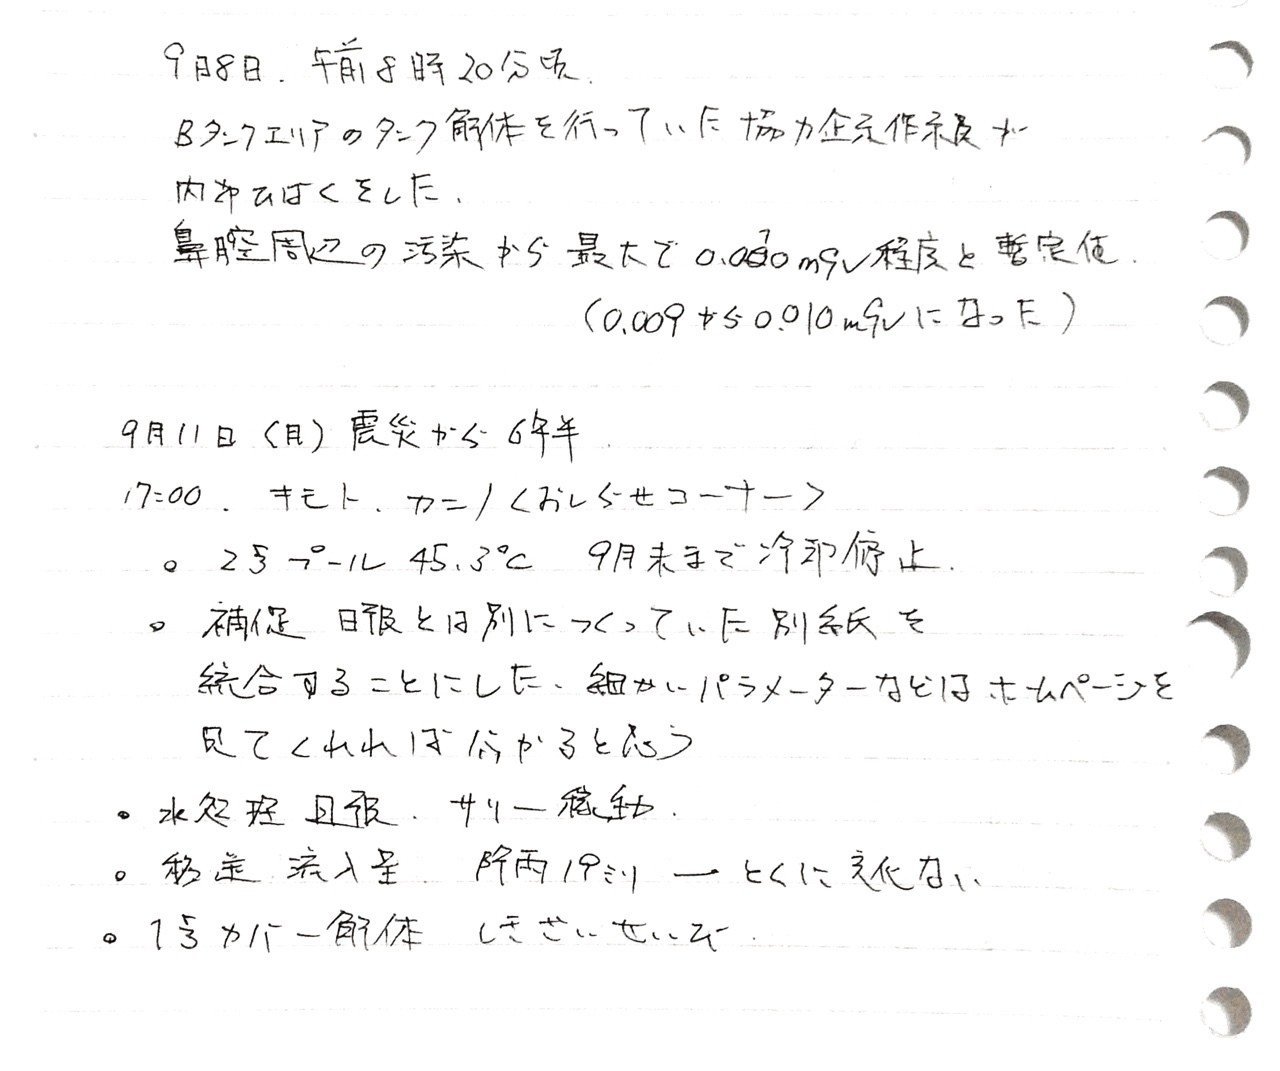 9月8日. 午前8時20分頃.
Bタンクエリアのタンク解体を行っていた協力企業作業員が
内部ひばくをした.
鼻腔周辺の汚染から最大で0.010mSv程度と暫定値.
(0.009から0.010mSvになった)
9月11日(月)震災から6年半.
17:00. キモト. カニノ<おしらせコーナー>
。2号プール 45.3℃ 9月末まで冷却停止.
。補足 日報とは別につくっていた別紙を
統合することにした. 細かいパラメーターなどはホームページを
見てくれれば分かると思う
。水処理 日報. サリー稼動.
。移送 流入量 降雨19ミリ ー とくに変化ない
。1号カバー解体 しきざいせいび.